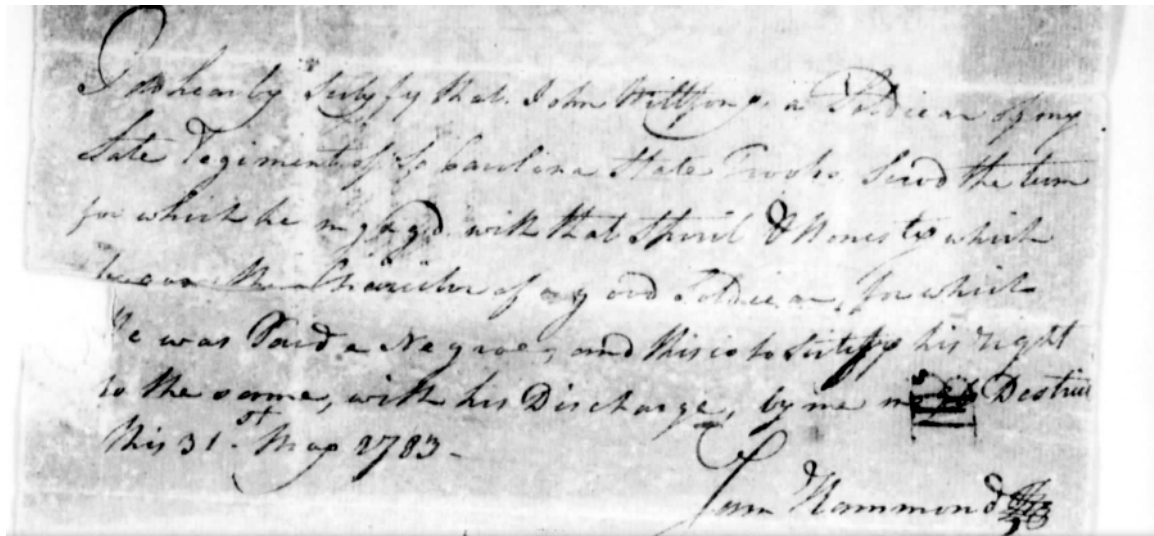 I do hearby Sertyfy that John Willfong a Soldiear of my
Late Regiment of So Carolina State Troops Servd the term
for which he ingaged with that Spirit & Honesty which
the Charicter of a good Soldiear, for which
He was Paid a Negroe, and this is to Sertify his right
to the same, with his Discharge, by me Destrict
this 31st May 1783 -
Sam Hammond